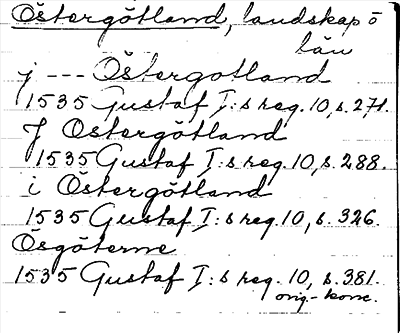 Östergötland, landskap o
län
j --- Östergotland
1535 Gustaf I:s reg. 10, s. 271.
J Ostergötland
1535 Gustaf I:s reg. 10, s. 288.
i Östergötland
1535 Gustaf I:s reg. 10, s. 326.
Ösgöterne
1535 Gustaf I:s reg. 10, s. 381.
orig.-konc.